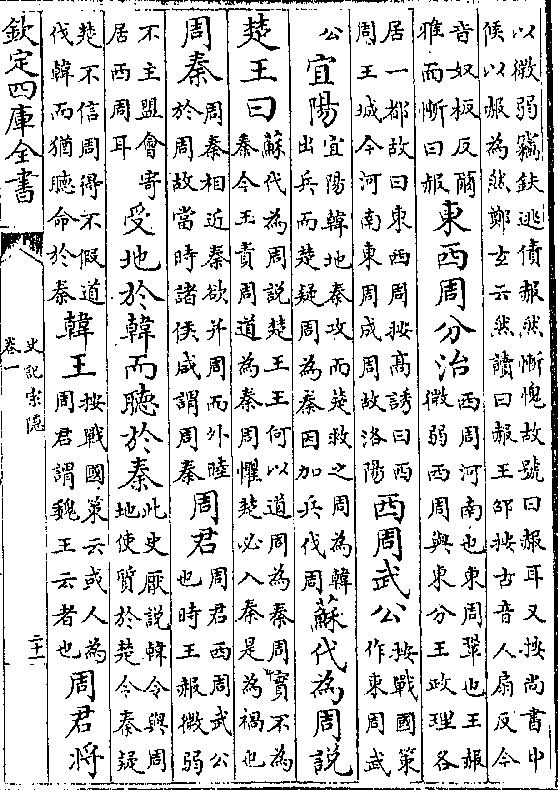 以微弱竊鈇逃債赧然慚愧故號曰赧耳又按尚書中
候以赧為然鄭玄云然讀曰赧王邵按古音人扇反今
音奴板反爾
雅而慚曰赧
東西周分治
西周河南也東周鞏也王赧
微弱西周與東分王政理各
居一都故曰東西周按高誘曰西
周王城今河南東周成周故洛陽
西周武公
按戰國策
作東周武
公
宜陽
宜陽韓地秦攻而楚救之周為韓
出兵而楚疑周為秦因加兵伐周
蘇代為周說
楚王曰
蘇代為周說楚王王何以道周為秦周實不為
秦今王責周道為秦周懼楚必入秦是為禍也
周秦
周秦相近秦欲并周而外睦
於周故當時諸侯咸謂周秦
周君
周君西周武公
也時王赧微弱
不主盟會寄
居西周耳
受地於韓而聽於秦
此史厭說韓令與周
地使質於楚令秦疑
楚不信周得不假道
伐韓而猶聽命於秦
韓王
按戰國策云或人為
周君謂魏王云者也
周君將
欽定四庫全書
史記索隱
卷一
二十一